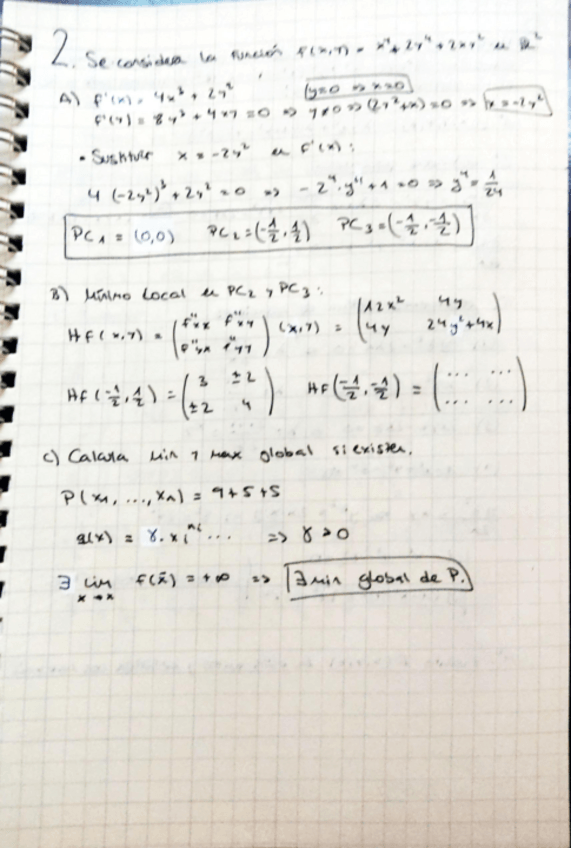 2. Se considera la función f(x,y) = x⁴+2y⁴+2xy² en ℝ²
A) f'(x) = 4x³ + 2y²
y=0 => x=0
f'(y) = 8y³ + 4xy = 0 => y≠0 => (2y²+x) = 0 => x = -2y²
• Sustituir x = -2y² en f'(x):
4 (-2y²)³ + 2y² = 0 => -2⁴·y⁴+1=0 => y⁴ = 1/24
PC₁ = (0,0) PC₂ = (-1/2, 1/2) PC₃ = (-1/2, -1/2)
B) Mínimo local en PC₂ y PC₃:
Hf(x,y) = (f''xx f''xy / f''yx f''yy) (x,y) = (12x² 4y / 4y 24y²+4x)
Hf(-1/2, 1/2) = (3 ±2 / ±2 4) Hf(-1/2, -1/2) = (... ... / ... ...)
c) Calcula min y max global si existen.
P(x₁, ..., xₙ) = 9+5+5
g(x) = γ·xᵢⁿⁱ ... => γ>0
∃ lim x→x f(x̄) = +∞ => ∃ min global de P.